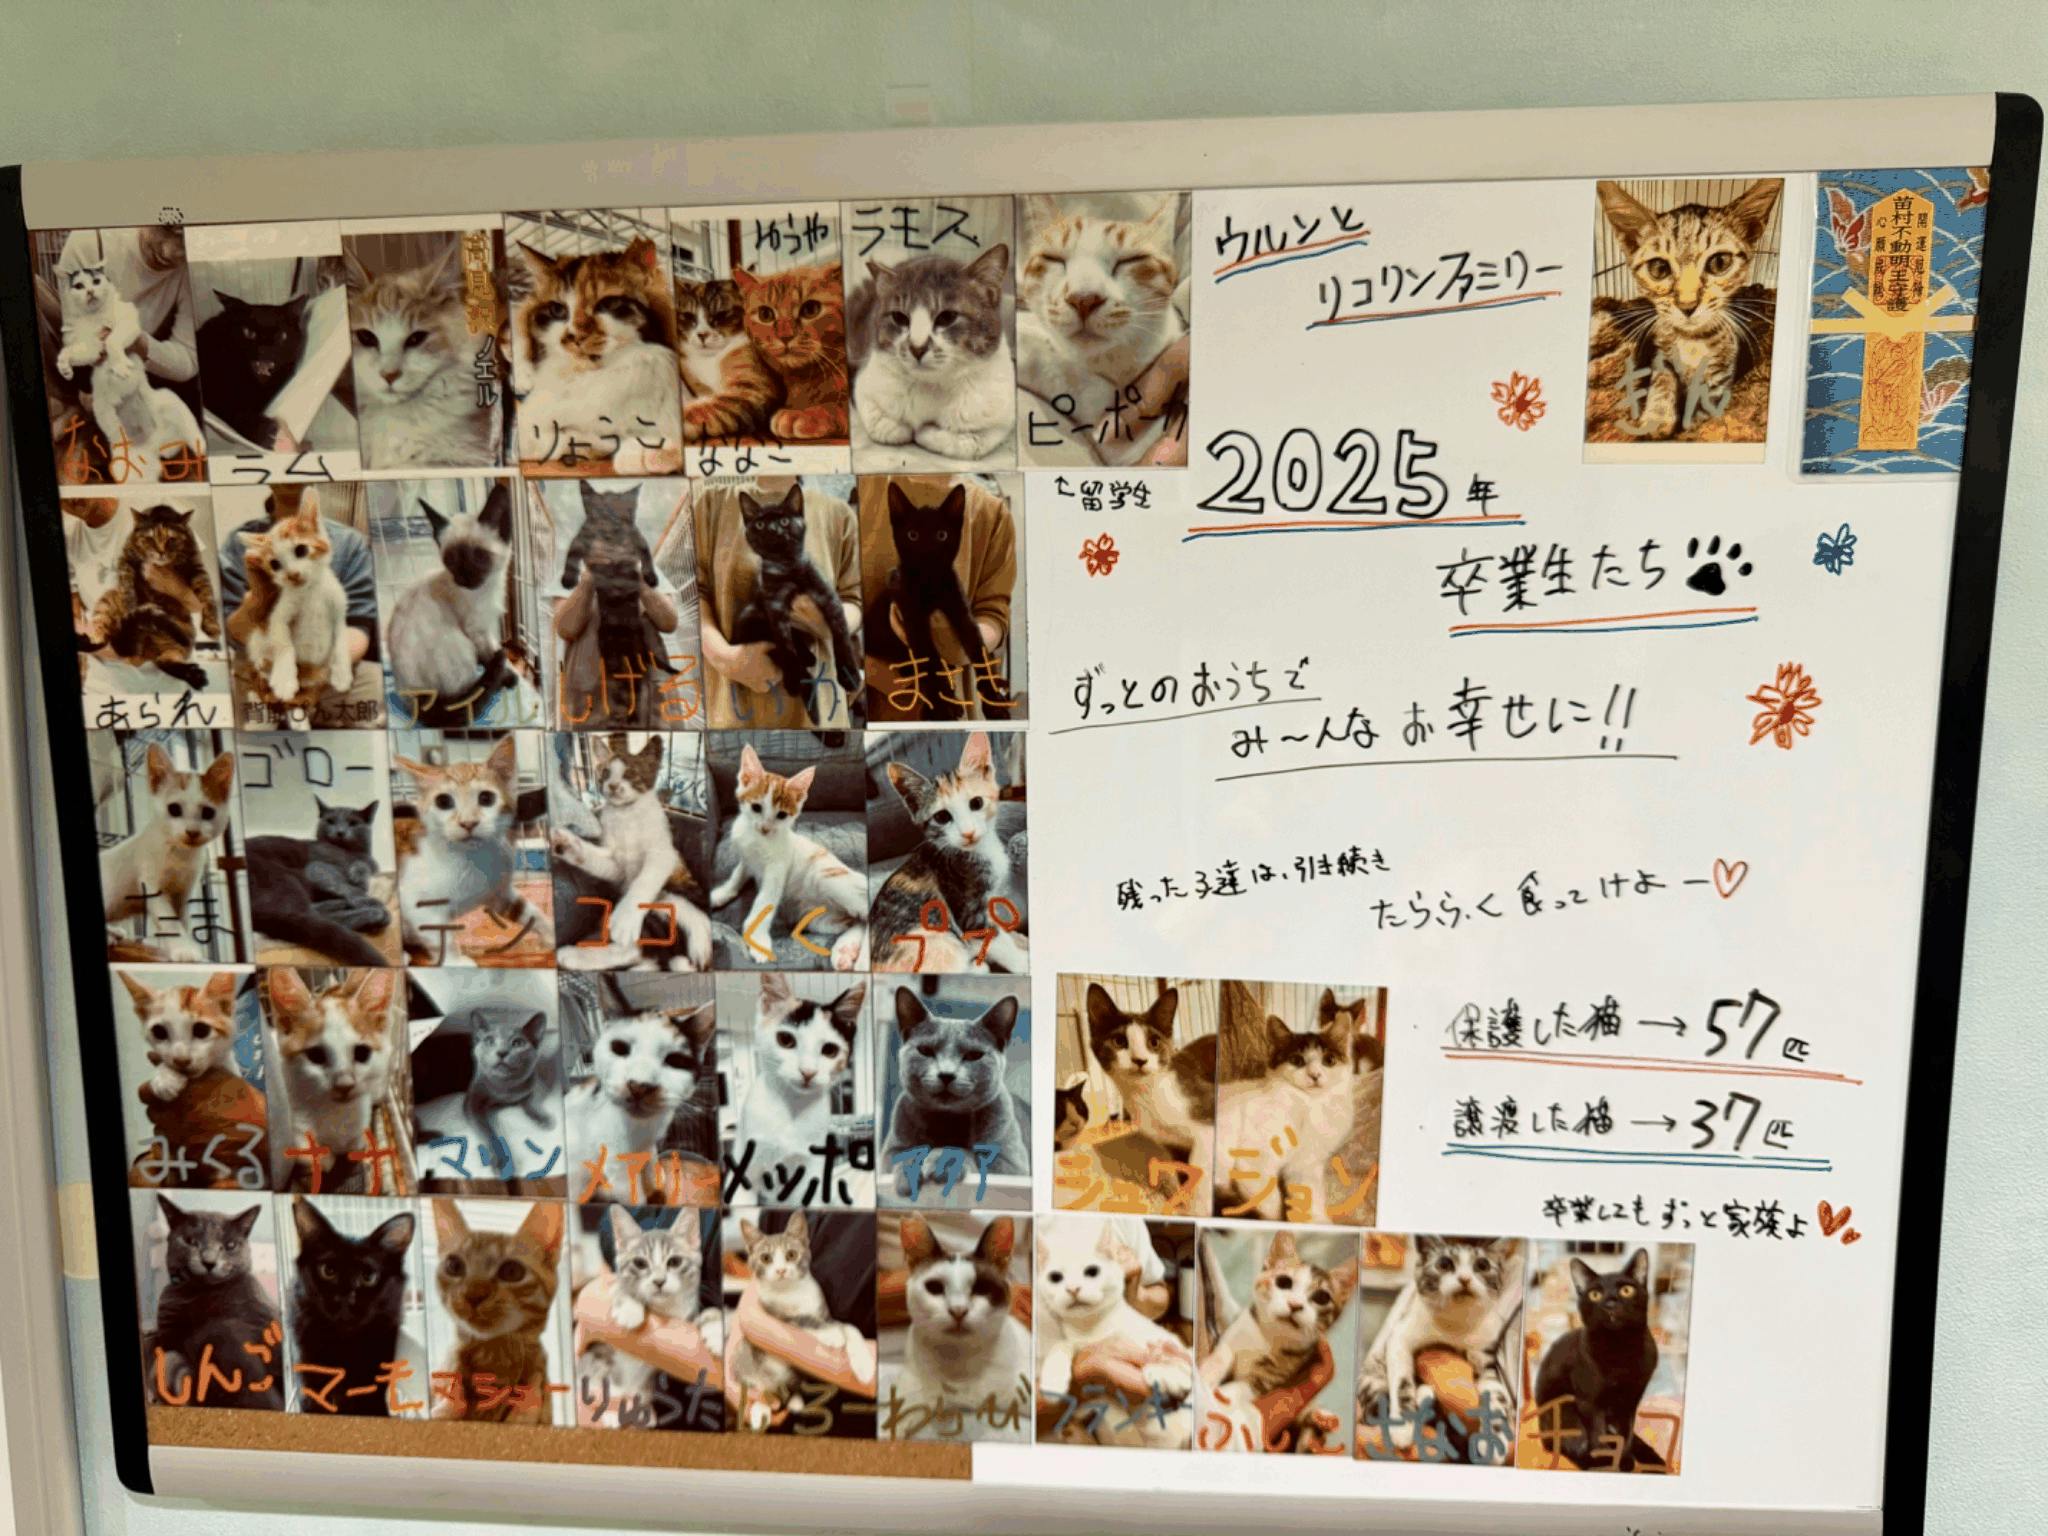 なおみ
ラム
ノエル
りょうこ
ゆうや
ななこ
ラモス
ピーポー
ウルンと
リコリンファミリー
ぎん
開運厄除
苗村不動明王守護
心願成就
↑留学生
2025年
卒業生たち
あられ
背筋ぴん太郎
アイル
しげる
いか
まさき
ずっとのおうちで
み〜んなお幸せに!!
たま
ゴロー
テン
ココ
くく
ププ
残った子達は、引き続き
たらふく食ってけよー♡
みくる
ナナ
マリン
メアリー
メッポ
アクア
シュワ
ジョン
保護した猫→57匹
譲渡した猫→37匹
卒業してもずっと家族よ
しんご
マーモ
マシュー
りゅうた
じろー
わらび
フランキー
ふじこ
さなお
チョコ